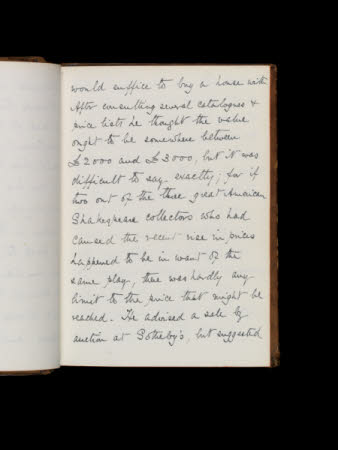 would suffice to buy a house with
After consulting several catalogues &
price lists he thought the value
ought to be somewhere between
£2000 and £3000, but it was
difficult to say exactly; for if
two out of the three great American
Shakespeare collectors who had
caused the recent rise in prices
happened to be in want of the
same play, there was hardly any
limit to the price that might be
reached. He advised a sale by
auction at Sotheby's, but suggested